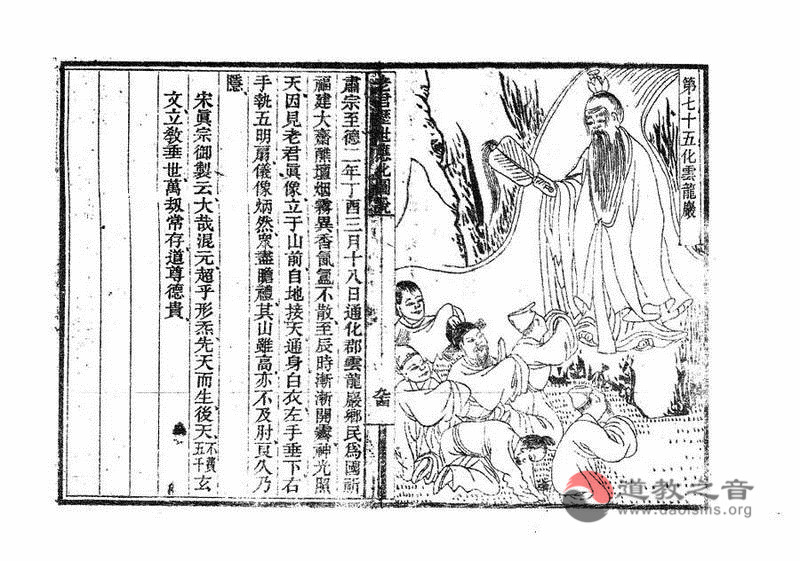 第七十五化雲龍巖
老君歷世應化圖說
肅宗至德二年丁酉三月十八日通化郡雲龍巖鄉民爲國祈
福建大齋醮壇烟霧異香氤氳不散至辰時漸漸開霽神光照
天因見老君眞像立于山前自地接天通身白衣左手垂下右
手執五明扇儀像炳然衆盡瞻禮其山雖高亦不及肘良久乃
隱
宋眞宗御製云大哉混元超乎形炁先天而生後天不費五千玄
文立敎垂世萬刼常存道尊德貴
道教之音
www.daoisms.org